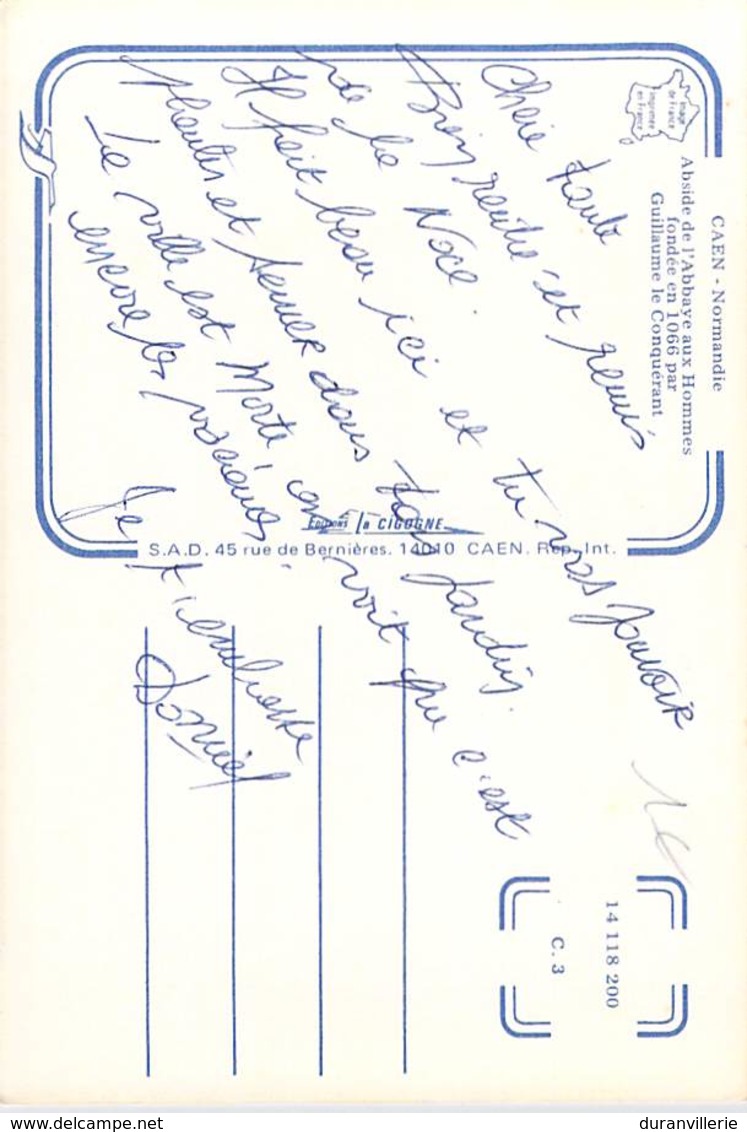 CAEN - Normandie
Abside de l'Abbaye aux Hommes
fondée en 1066 par
Guillaume le Conquérant
image
de France
imprimée
en France
Chère tante
Bien rentré et remis
de la Noce.
Il fait beau ici et tu vas pouvoir
planter et semer dans ton jardin.
La ville est Morte, on voit que c'est
encore les vacances.
Je t'embrasse
Daniel
EDITIONS la CIGOGNE
S.A.D. 45 rue de Bernières. 14010 CAEN. Rep. Int.
1€
14 118 200
C. 3
delcampe.net
duranvillerie